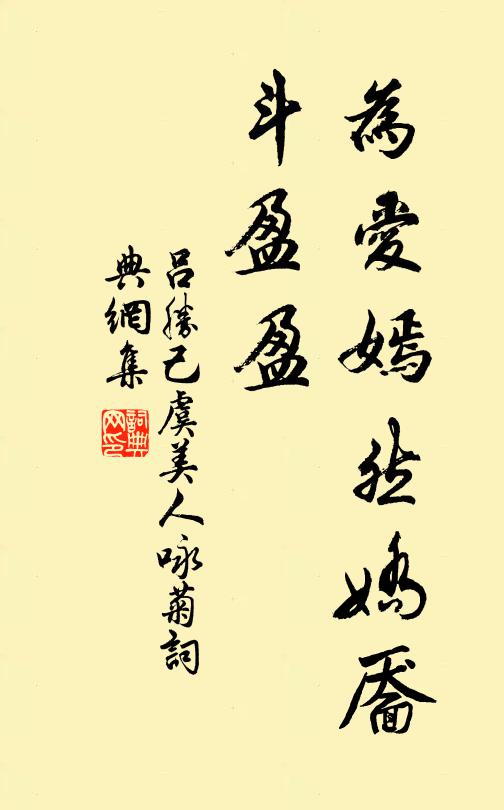 為愛嫣然嬌靨
斗盈盈
呂勝己虞美人咏菊詞
典網集
詞典网印